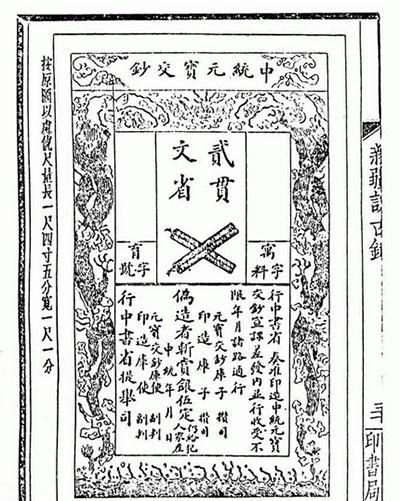 新疆訪古錄
印書局
中統元寶交鈔
貳貫
文省
寓字料
育字號
行中書省 奏准印造中統元寶
交鈔宣課差發內並行收受不
限年月諸路通行
元寶交鈔庫子 攢司
印造庫子 攢司
偽造者斬賞銀伍定 仍給犯人家產
中統 年 月 日
元寶交鈔庫使 副判
印造庫使 副判
行中書省提舉司
按原圖以慮俿尺量長一尺四寸五分寬一尺一分